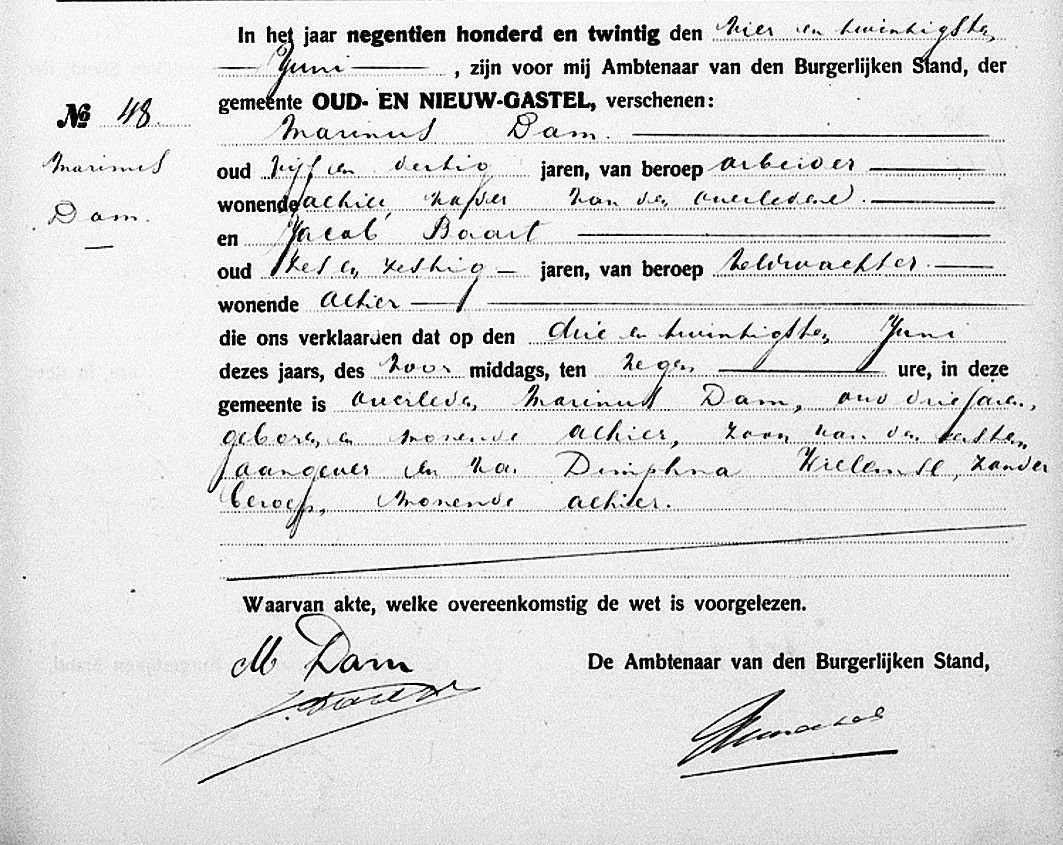 In het jaar negentien honderd en twintig den vier en twintigsten
Juni, zijn voor mij Ambtenaar van den Burgerlijken Stand, der
gemeente OUD- EN NIEUW-GASTEL, verschenen:
№ 48.
Marinus
Dam.
Marinus Dam.
oud vijf en dertig jaren, van beroep arbeider
wonende alhier, vader van den overledene.
en Jacob Baart
oud zes en zestig jaren, van beroep veldwachter.
wonende alhier
die ons verklaarden dat op den drie en twintigsten Juni
dezes jaars, des voor middags, ten negen ure, in deze
gemeente is overleden Marinus Dam, oud drie jaren,
geboren en wonende alhier, zoon van den eersten
aangever en van Dimphna Willemse, zonder
beroep, wonende alhier.
Waarvan akte, welke overeenkomstig de wet is voorgelezen.
M Dam
De Ambtenaar van den Burgerlijken Stand,
J. Baart